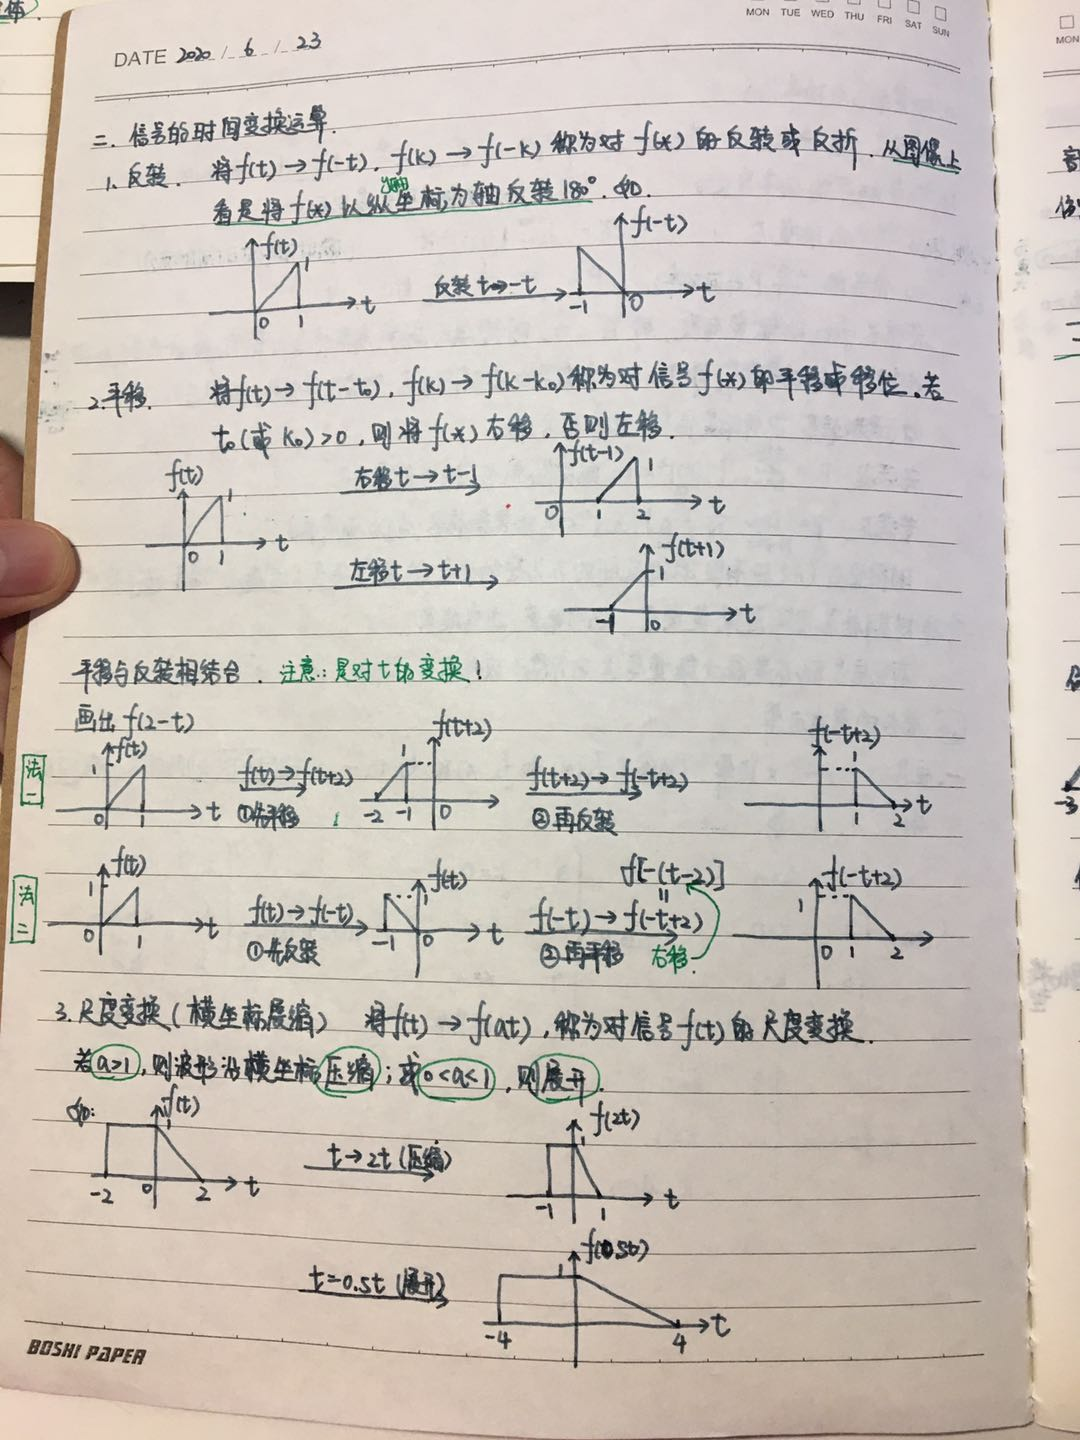 体
MON TUE WED THU FRI SAT SUN
DATE 2020 / 6 / 23
二. 信号的时间变换运算.
1. 反转. 将f(t)→f(-t), f(k)→f(-k) 称为对 f(x) 的反转或反折. 从图像上
看是将 f(x) 以纵坐标为轴反转180°. 如.
f(t) 1 0 1 t 反转 t→-t f(-t) -1 0 t
2.平移. 将f(t)→f(t-t₀), f(k)→f(k-k₀)称为对信号f(x)的平移或移位. 若
t₀(或 k₀)>0, 则将 f(x) 右移, 否则左移.
f(t) 1 0 1 t 右移 t→t-1 f(t-1) 1 0 1 2 t
左移 t→t+1 f(t+1) 1 -1 0 t
平移与反转相结合. 注意: 是对 t 的变换!
画出 f(2-t)
法一 f(t) 1 0 1 t f(t)→f(t+2) ①先平移 f(t+2) 1 -2 -1 0 f(t+2)→f(-t+2) ②再反转 f(-t+2) 1 2 t
法二 f(t) 1 0 1 t f(t)→f(-t) ①先反转 f(t) -1 0 t f[-(t-2)] = f(-t)→f(-t+2) ②再平移 右移. f(-t+2) 1 0 1 2
3. 尺度变换(横坐标展缩) 将f(t)→f(at), 称为对信号f(t)的尺度变换.
若a>1, 则波形沿横坐标压缩; 或0<a<1, 则展开.
如: f(t) 1 -2 0 2 t t→2t (压缩) f(2t) 1 -1 1 t
t=0.5t (展开) f(0.5t) 1 -4 4 t
BOSHI PAPER
MON
-3